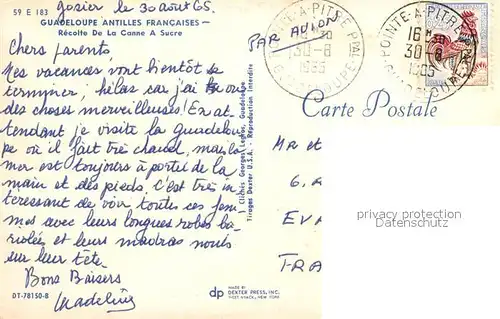 59 E 183
gosier le 30 août 65.
GUADELOUPE ANTILLES FRANÇAISES —
Récolte De La Canne A Sucre
Chers parents
Mes vacances vont bientôt se
terminer; hélas car j'ai vu
des choses merveilleuses! En at-
tendant je visite la guadelou
pe où il fait très chaud, mais la
mer est toujours à portée de la
main et des pieds. c'est très in
teressant de voir toutes ces fem
mes avec leurs longues robes ba-
riolées et leurs madras noués
sur leur tête.
Bons Baisers
Madeline
DT-78150-B
Clichés Georges Guadeloupe
Tirages Dexter U.S.A. Reproduction Interdite
dp
MADE BY
DEXTER PRESS, INC.
WEST NYACK, NEW YORK
PAR AVION
POINTE-A-PITRE PPAL
30-8
1965
GUADELOUPE
POINTE-A-PITRE
16H30
30-8
1965
Carte Postale
Mr et
6. A
EV
FRA
privacy protection
watermark